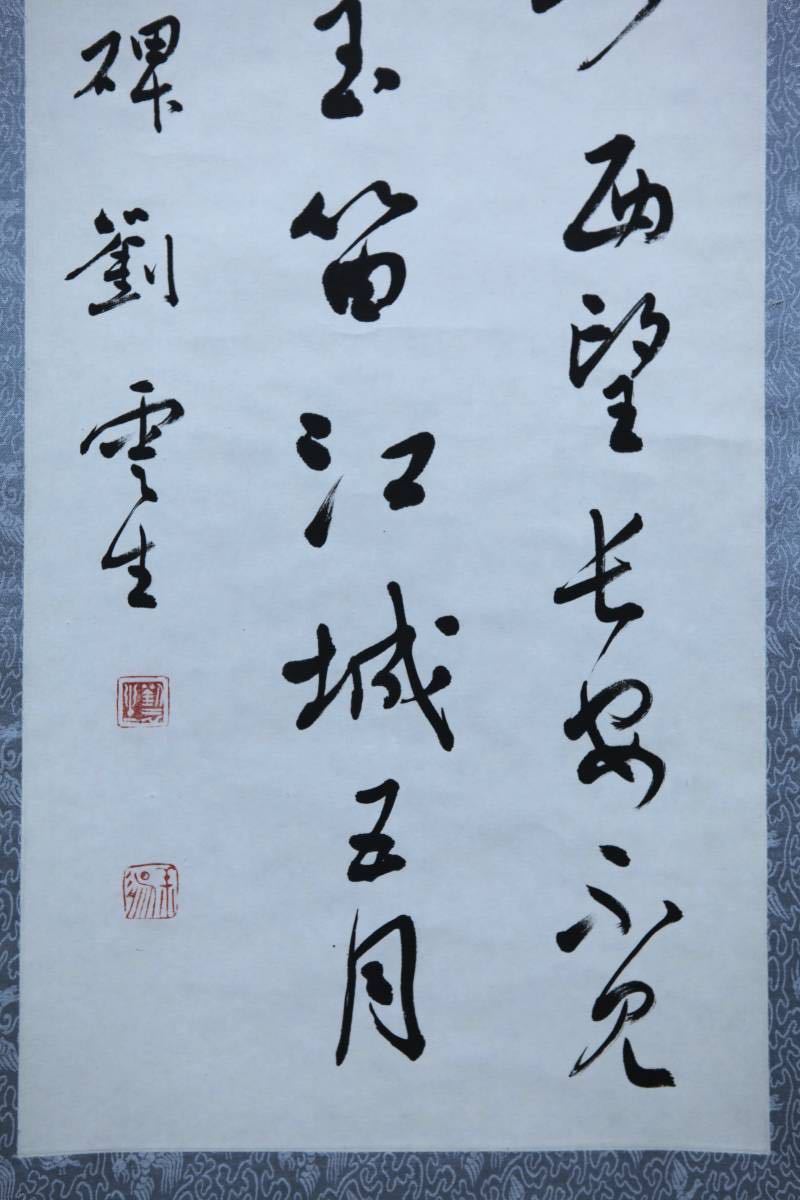 沙西望长安不见
玉笛江城五月
碑劉雲生